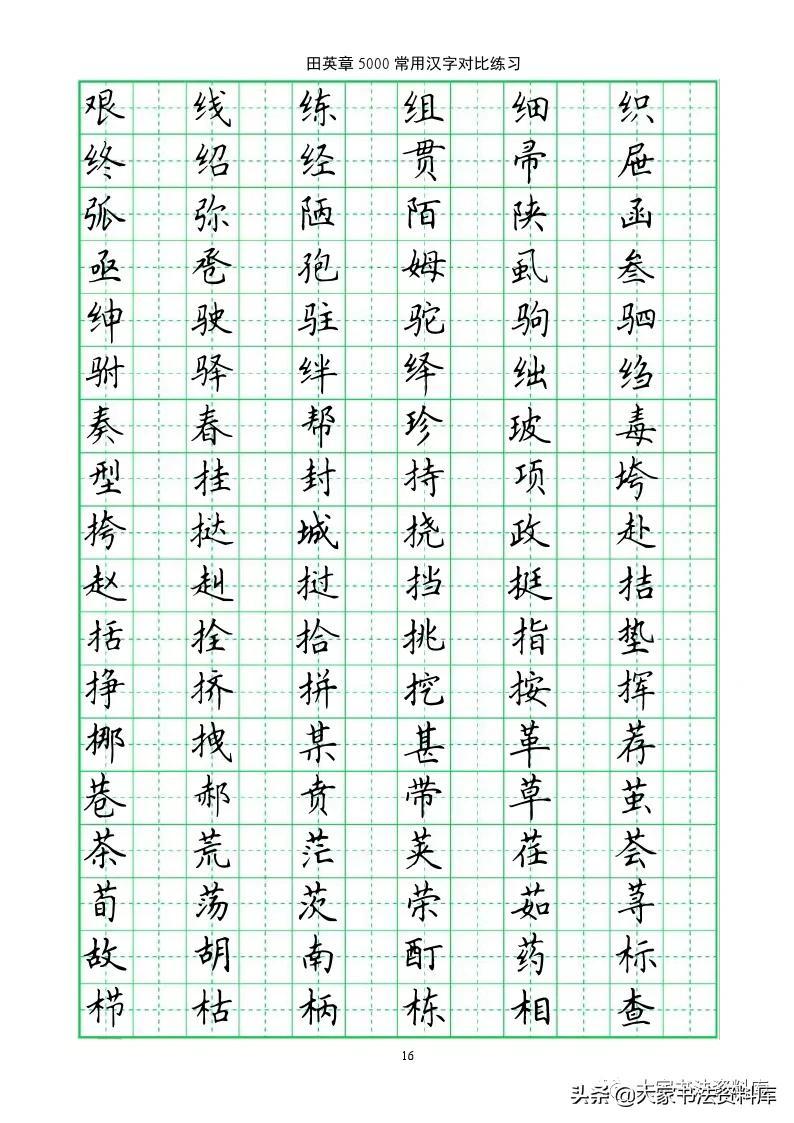 田英章5000常用汉字对比练习
艰 线 练 组 细 织
终 绍 经 贯 帚 屉
弧 弥 陋 陌 陕 函
亟 卺 孢 姆 虱 叁
绅 驶 驻 驼 驹 驷
驸 驿 绊 绎 绌 绉
奏 春 帮 珍 玻 毒
型 挂 封 持 项 垮
挎 挞 城 挠 政 赴
赵 赳 挝 挡 挺 拮
括 拴 拾 挑 指 垫
挣 挤 拼 挖 按 挥
挪 拽 某 甚 革 荐
巷 郝 贲 带 草 茧
茶 荒 茫 荚 荏 荟
荀 荡 茨 荣 茹 荨
故 胡 南 酊 药 标
栉 枯 柄 栋 相 查
16
头条 @大家书法资料库